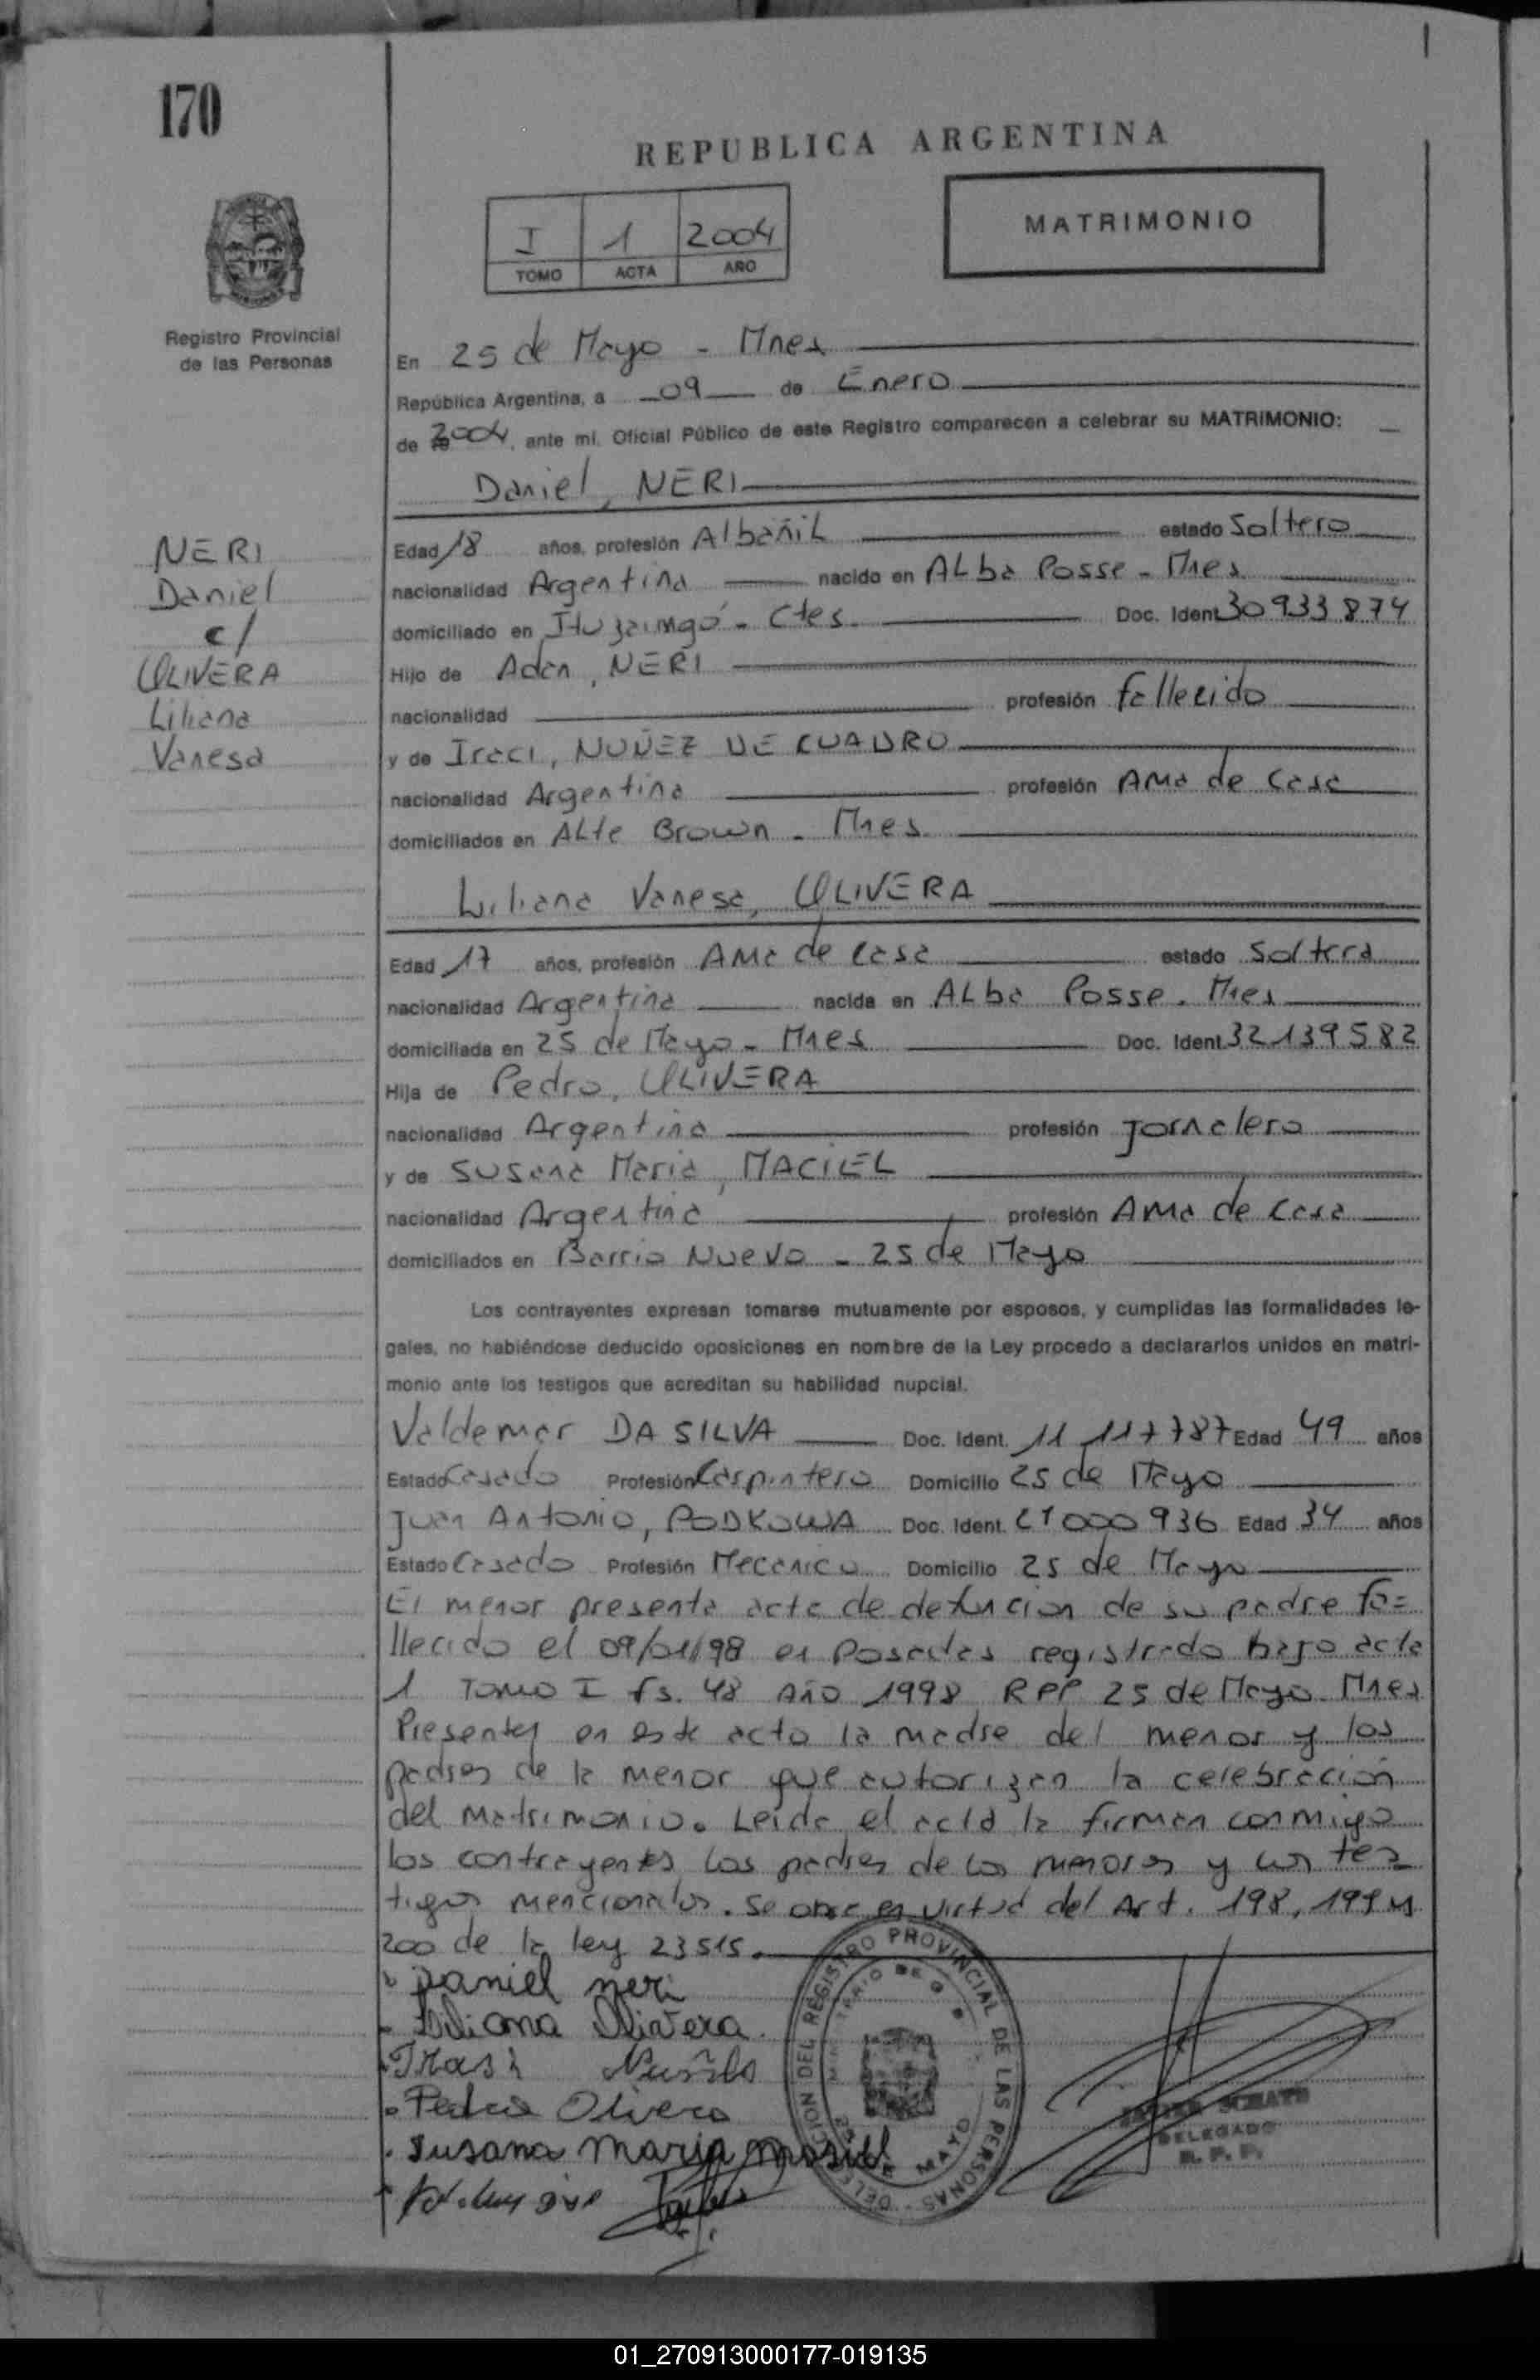 170
REPUBLICA ARGENTINA
I 1 2004
TOMO ACTA AÑO
MATRIMONIO
Registro Provincial
de las Personas
En 25 de Mayo - Mnes
República Argentina, a 09 de Enero
de 2004, ante mi, Oficial Público de este Registro comparecen a celebrar su MATRIMONIO:
Daniel, NERI
NERI
Daniel
c/
OLIVERA
Liliana
Vanesa
Edad 18 años, profesión Albañil estado Soltero
nacionalidad Argentina nacido en Alba Posse - Mnes
domiciliado en Ituzaingó - Ctes. Doc. Ident. 30933874
Hijo de Adan, NERI
nacionalidad profesión fallecido
y de Iraci, NUÑEZ DE CUADRO
nacionalidad Argentina profesión Ama de Casa
domiciliados en Alte Brown - Mnes
Liliana Vanesa, OLIVERA
Edad 17 años, profesión Ama de Casa estado Soltera
nacionalidad Argentina nacida en Alba Posse - Mnes
domiciliada en 25 de Mayo - Mnes Doc. Ident. 32139582
Hija de Pedro, OLIVERA
nacionalidad Argentina profesión Jornalero
y de Susana Maria, MACIEL
nacionalidad Argentina profesión Ama de Casa
domiciliados en Barrio Nuevo - 25 de Mayo
Los contrayentes expresan tomarse mutuamente por esposos, y cumplidas las formalidades le-
gales, no habiéndose deducido oposiciones en nombre de la Ley procedo a declararlos unidos en matri-
monio ante los testigos que acreditan su habilidad nupcial.
Valdemar DA SILVA Doc. Ident. 11.117787 Edad 49 años
Estado Casado Profesión Carpintero Domicilio 25 de Mayo
Juan Antonio, PODKOWA Doc. Ident. 21000936 Edad 34 años
Estado Casado Profesión Mecanico Domicilio 25 de Mayo
El menor presenta acta de defuncion de su padre fa=
llecido el 09/01/98 en Posadas registrado bajo acta
1 Tomo I fs. 48 Año 1998 RPP 25 de Mayo - Mnes
Presentes en este acto la madre del menor y los
padres de la menor que autorizan la celebración
del matrimonio. Leida el acta la firman conmigo
los contrayentes los padres de los menores y los tes
tigos mencionados. Se obra en virtud del Art. 198, 199 y
200 de la ley 23515.
Daniel neri
Liliana Olivera
Pedro Olivera
Susana Maria
DELEGACION DEL REGISTRO PROVINCIAL DE LAS PERSONAS
25 DE MAYO
DELEGADO
R. P. P.
01_270913000177-019135